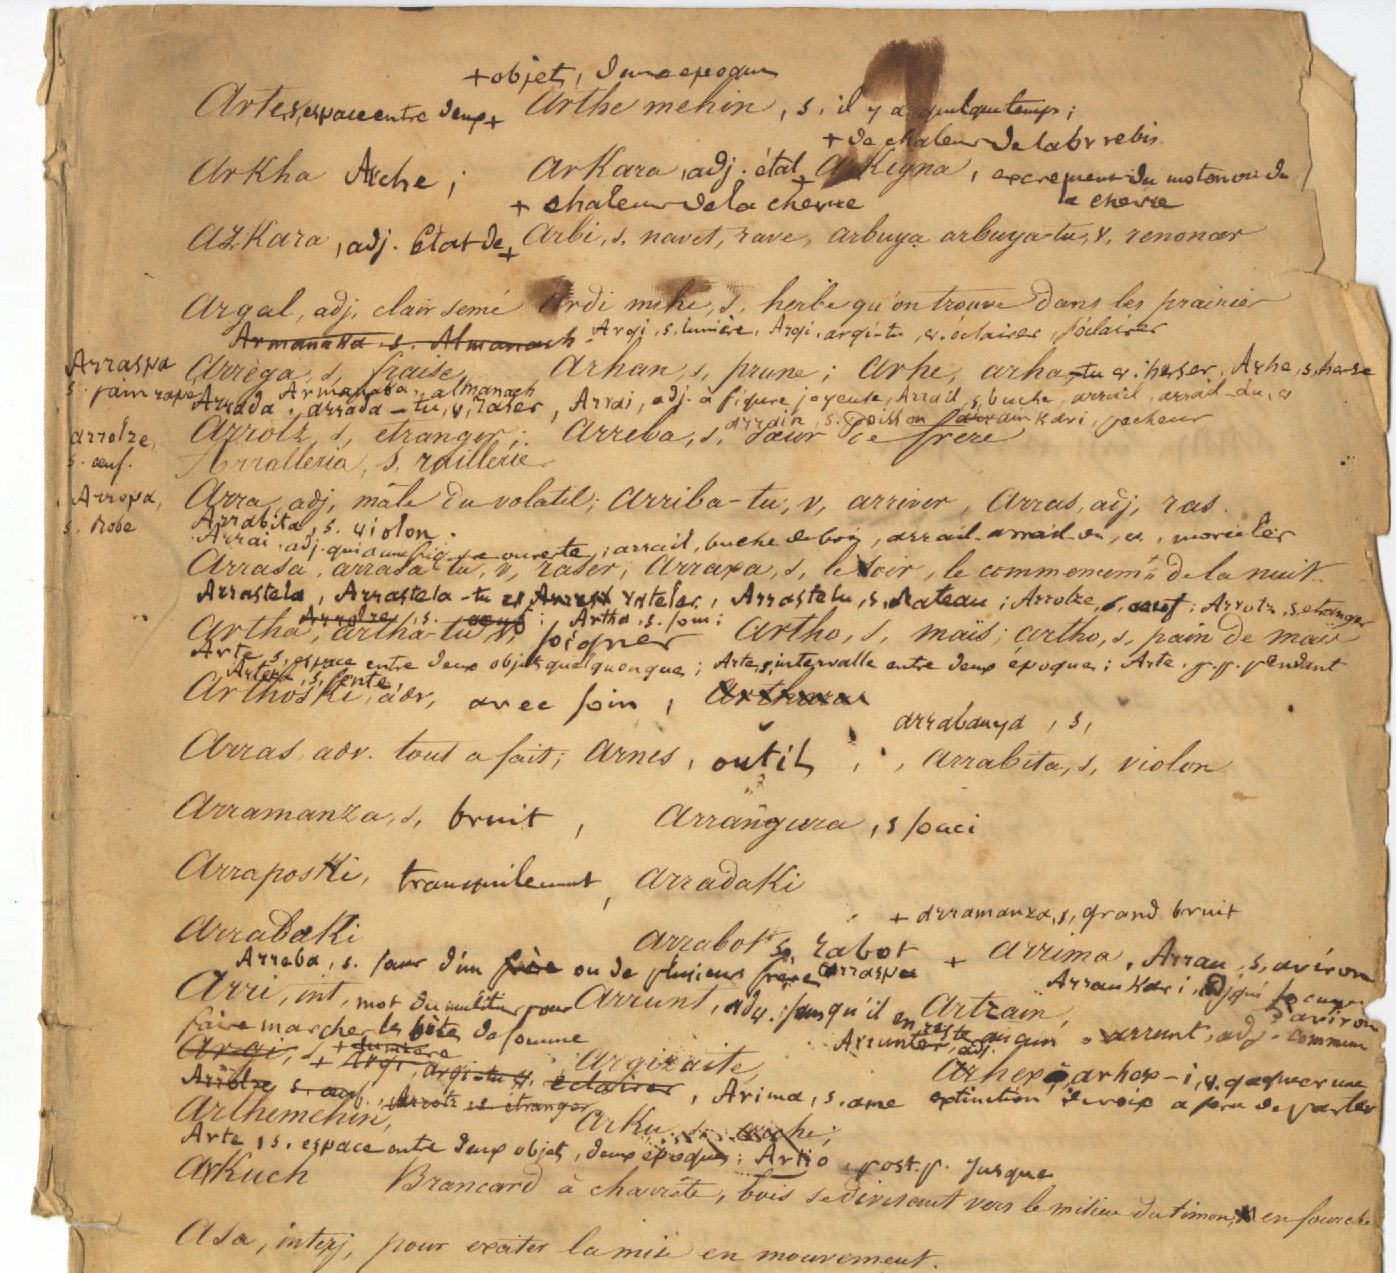 + objet, deux epoques
Arte, s, espace entre deux + Arthe mehin, s, il y a quelque temps;
+ de chaleur de la brebis
Arkha Arche; Arkara, adj. état + Arkigna, excrement du mouton ou de
+ chaleur de la chevre la chevre
Azkara, adj. Etat de + Arbi, s, navet, rave, arbuya arbuya-tu, v, renoncer
Argal, adj, clair semé Ardi mihi, s, herbe qu'on trouve dans les prairies
Armanaka s. Almanach Argi, s. lumière, Argi, argi-tu, v. éclairer, s'éclairer
Arraspa Arrega, s, fraise, Arhan, s, prune; arhe, arha-tu v. herser, Arhe, s, herse
s. pain rapé Armanaka, almanach
Arrada, arrada-tu, v, raser, Arrai, adj. à figure joyeuse, Arrail, s, buche, arrail, arrail-du, v
arrain, s. poisson arrain kari, pecheur
arrolze, Arrotz, s, etranger; Arreba, s, sœur de frere
s. œuf. Arralleria, s, raillerie
Arropa, Arra, adj, mâle du volatil; arriba-tu, v, arriver, arras, adj, ras.
s. robe Arrabita, s. violon.
Arrai, adj. qui a une figure ouverte; arrail, buche de bois, arrail-arrail-du, v, morceler
Arrasa, arrasa-tu, v, raser; Arraxa, s, le soir, le commencemt de la nuit.
Arrastela, Arrastela-tu v, rateler, Arrastelu, s, Rateau; Arrolze, s, œuf; Arrotz, s, etranger
Arrolze, s. œuf; Artha, s. soin;
Artha, artha-tu v, soigner Artho, s, maïs; artho, s, pain de maïs
Arte, s, espace entre deux objets quelquonque; Arte, s, intervalle entre deux époque; Arte, p.p. pendant
Arteka, s, fente,
Arthoski, adv, avec soin,
arrabauya, s,
Arras, adv. tout a fait; arnes, outil, arrabita, s, violon
Arramanza, s, bruit, Arrangura, s souci
Arraposki, tranquilement, Arradaki
+ arramanza, s, grand bruit
Arradaki Arrabot s, rabot + arrima, Arrau, s, aviron
Arreba, s. sœur d'un frère ou de plusieurs frère Arraspa Arrau kari, adj qui
Arri, int, mot du multier pour Arrunt, adv, jusqu'il en reste aucun Artzain, d'aviron
faire marcher les bête de somme Arrunter, adj. arrunt, adj. commun
Argi, s, + lumière
+ Argi, argi-tu v, éclairer Argizaite, Arhex, arhex-i, v, gagner une
Arrolze, s. œuf, Arrotz s. étranger, Arima, s. ame extinction de voix a force de parler
Arthemehin, Arku, s. arche;
Arte, s. espace entre deux objet, deux époque; Artio, post. p. jusque
Arkuch Brancard à charrête, bois se divisant vers le milieu du timon, en fourche
Asa, interj, pour exciter la mise en mouvement.